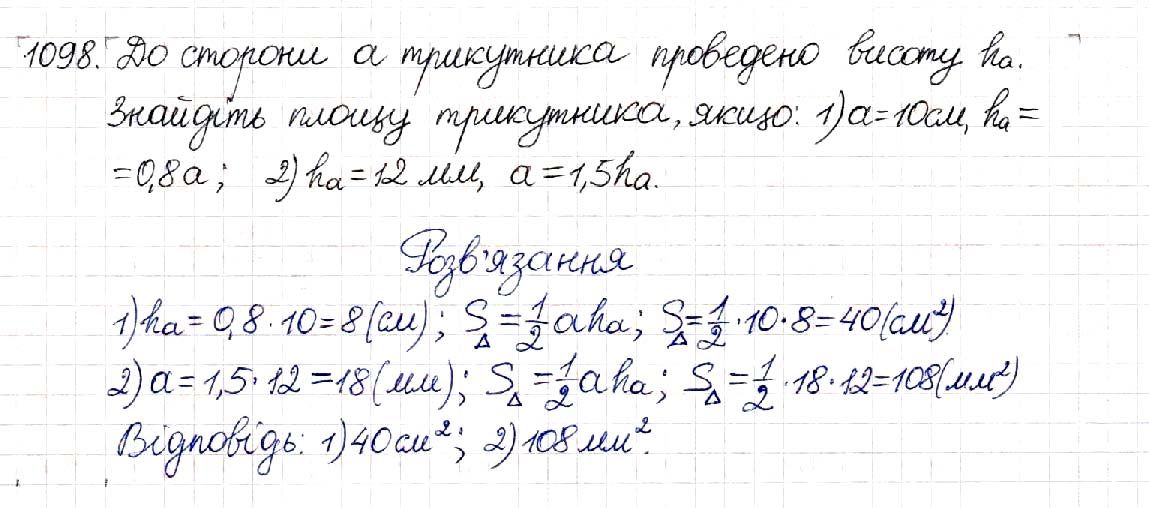 1098. До сторони a трикутника проведено висоту hₐ.
Знайдіть площу трикутника, якщо: 1) a=10см, hₐ=
=0,8a; 2) hₐ=12 мм, a=1,5hₐ.
Розв'язання
1) hₐ=0,8·10=8(см); S△=1/2ahₐ; S△=1/2·10·8=40(см²)
2) a=1,5·12=18(мм); S△=1/2ahₐ; S△=1/2·18·12=108(мм²)
Відповідь: 1) 40 см²; 2) 108 мм².